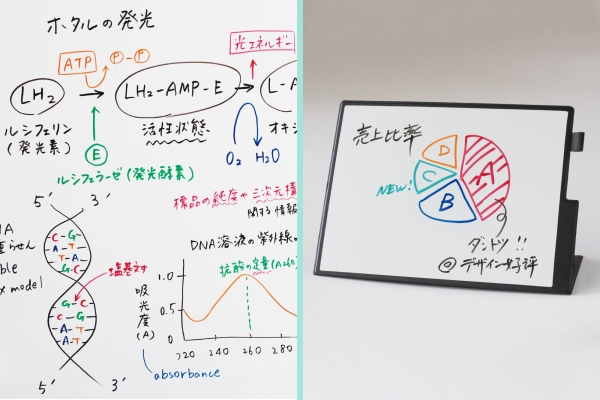 ホタルの発光
光エネルギー
ATP
P-P
LH2
LH2-AMP-E
L-A
ルシフェリン
(発光素)
活性状態
オキシ
E
O2 H2O
ルシフェラーゼ(発光酵素)
標品の純度や三次元構
関する情報
5' 3'
DNA溶液の紫外線
C-G
A-T
T-A
G-C
ble
x model
塩基対
G-C
C-G
A-T
A-T
5' 3'
抗酸の定量(A260)
吸光度(A)
1.0
0.5
0
220 240 260 280 3
absorbance
売上比率
D
C
NEW!
B
A
ダントツ!!
@デザイン好評